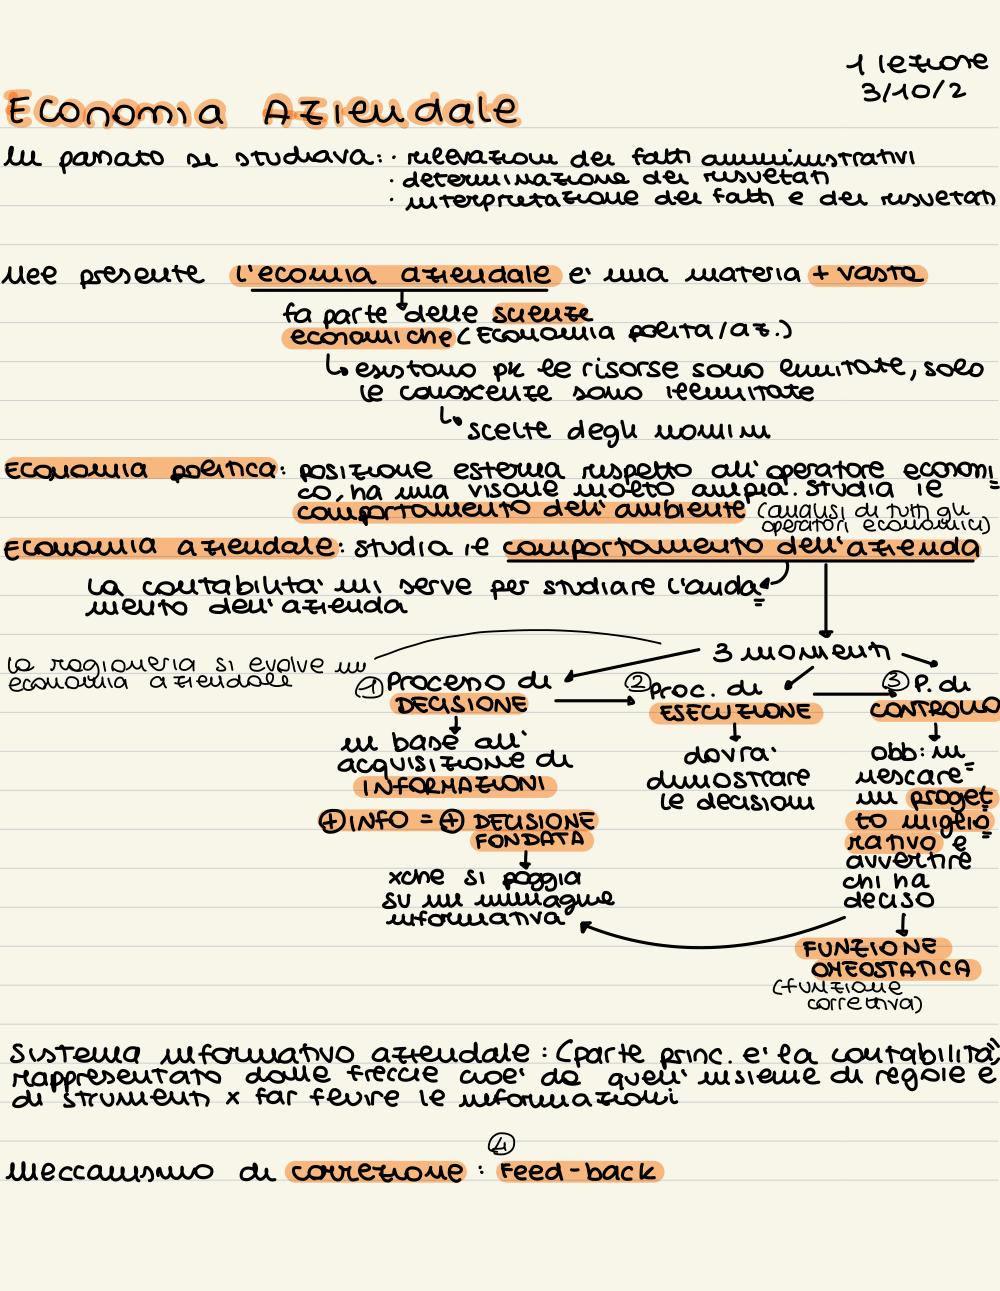 1 lezione
3/10/2
Economia Aziendale
In passato si studiava: · rilevazioni dei fatti amministrativi
· determinazione dei risultati
· interpretazione dei fatti e dei risultati
Nel presente l'ecomia aziendale e' una materia + vasta
fa parte delle scienze
economiche (Economia polita/az.)
esistono pk le risorse sono limitate, solo
le conoscenze sono illimitate
scelte degli uomini
Economia politica: posizione esterna rispetto all'operatore economi=
co, ha una visone molto ampia. Studia le
comportamento dell'ambiente (analisi di tutti gli
operatori economici)
Economia aziendale: studia le comportamento dell'azienda
La contabilita' mi serve per studiare l'anda=
mento dell'azienda
3 momenti
La ragioneria si evolve in
economia aziendale
① Processo di
DECISIONE
② Proc. di
ESECUZIONE
③ P. di
CONTROLLO
in base all'
acquisizione di
INFORMAZIONI
⊕ INFO = ⊕ DECISIONE
FONDATA
xche si poggia
su un immagine
informativa
dovra'
dimostrare
le decisioni
obb: in
nescare=
un proget=
to miglio=
rativo e
avvertire
chi ha
deciso
FUNZIONE
OMEOSTATICA
(funzione
correttiva)
Sistema informativo aziendale: (parte princ. e' la contabilita')
rappresentato dalle freccie cioe' da quell'insieme di regole e
di strumenti x far fluire le informazioni
④
Meccanismo di correzione: Feed-back